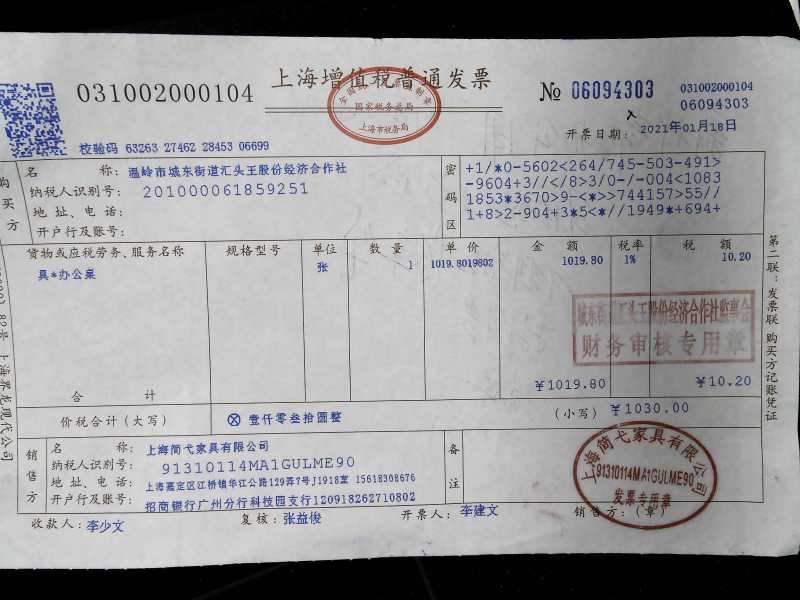 上海增值税普通发票
031002000104
№ 06094303
031002000104
06094303
国家税务总局
上海市税务局
校验码 63263 27462 28453 06699
开票日期: 2021年01月18日
购买方
名 称: 温岭市城东街道汇头王股份经济合作社
纳税人识别号: 201000061859251
地 址、电 话:
开户行及账号:
密码区
+1/*0-5602<264/745-503-491>
-9604+3//</8>3/0-/-004<1083
1853*3670>9-<*>>744157>55//
1+8>2-904+3*5<*//1949*+694+
货物或应税劳务、服务名称 规格型号 单位 数 量 单 价 金 额 税率 税 额
具*办公桌 张 1 1019.8019802 1019.80 1% 10.20
城东街道汇头王股份经济合作社监事会
财务审核专用章
合 计 ¥1019.80 ¥10.20
价税合计(大写) ⊗ 壹仟零叁拾圆整 (小写) ¥1030.00
销售方
名 称: 上海简弋家具有限公司
纳税人识别号: 91310114MA1GULME90
地 址、电 话: 上海嘉定区江桥镇华江公路129弄7号J1918室 15618308676
开户行及账号: 招商银行广州分行科技园支行120918262710802
备注
上海简弋家具有限公司
91310114MA1GULME90
发票专用章
收款人: 李少文 复核: 张益俊 开票人: 李建文 销售方: (章)
第二联:发票联 购买方记账凭证
82号 上海界龙现代公司